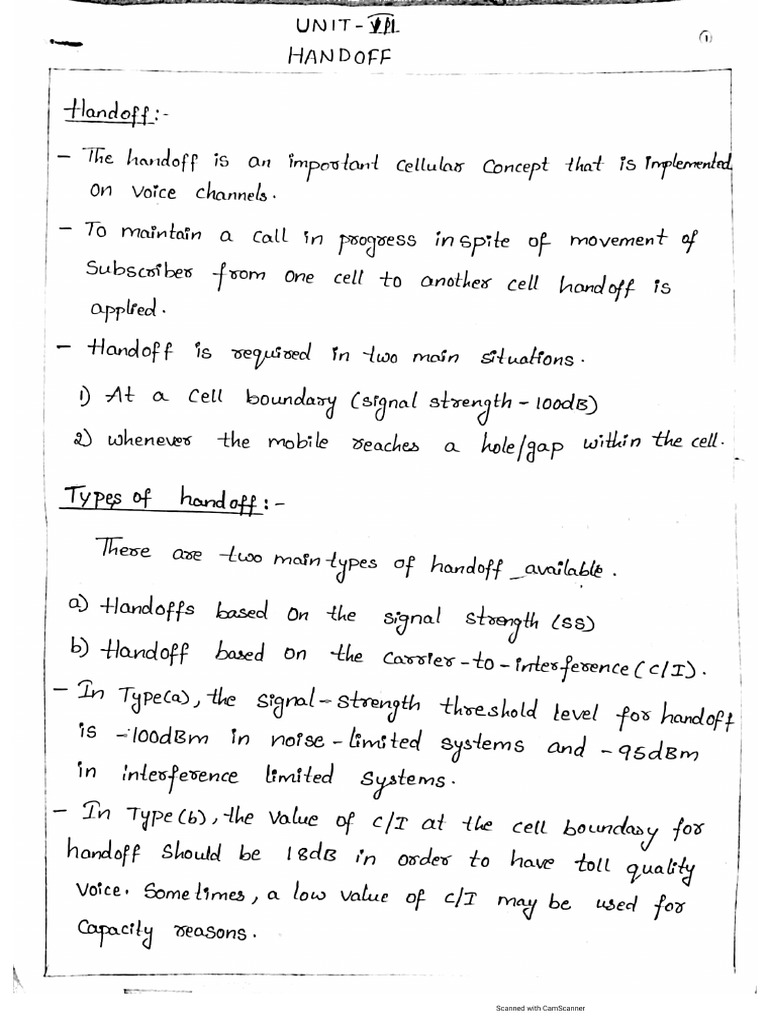 UNIT-VII
①
HANDOFF
Handoff:-
- The handoff is an important cellular concept that is implemented
on voice channels.
- To maintain a call in progress inspite of movement of
Subscriber from one cell to another cell handoff is
applied.
- Handoff is required in two main situations.
1) At a cell boundary (signal strength - 100dB)
2) whenever the mobile reaches a hole/gap within the cell.
Types of handoff:-
There are two main types of handoff available.
a) Handoffs based on the signal strength (SS)
b) Handoff based on the carrier-to-interference (C/I).
- In Type(a), the signal-strength threshold level for handoff
is -100dBm in noise-limited systems and -95dBm
in interference limited systems.
- In Type(b), the value of C/I at the cell boundary for
handoff should be 18dB in order to have toll quality
voice. Sometimes, a low value of C/I may be used for
capacity reasons.
Scanned with CamScanner